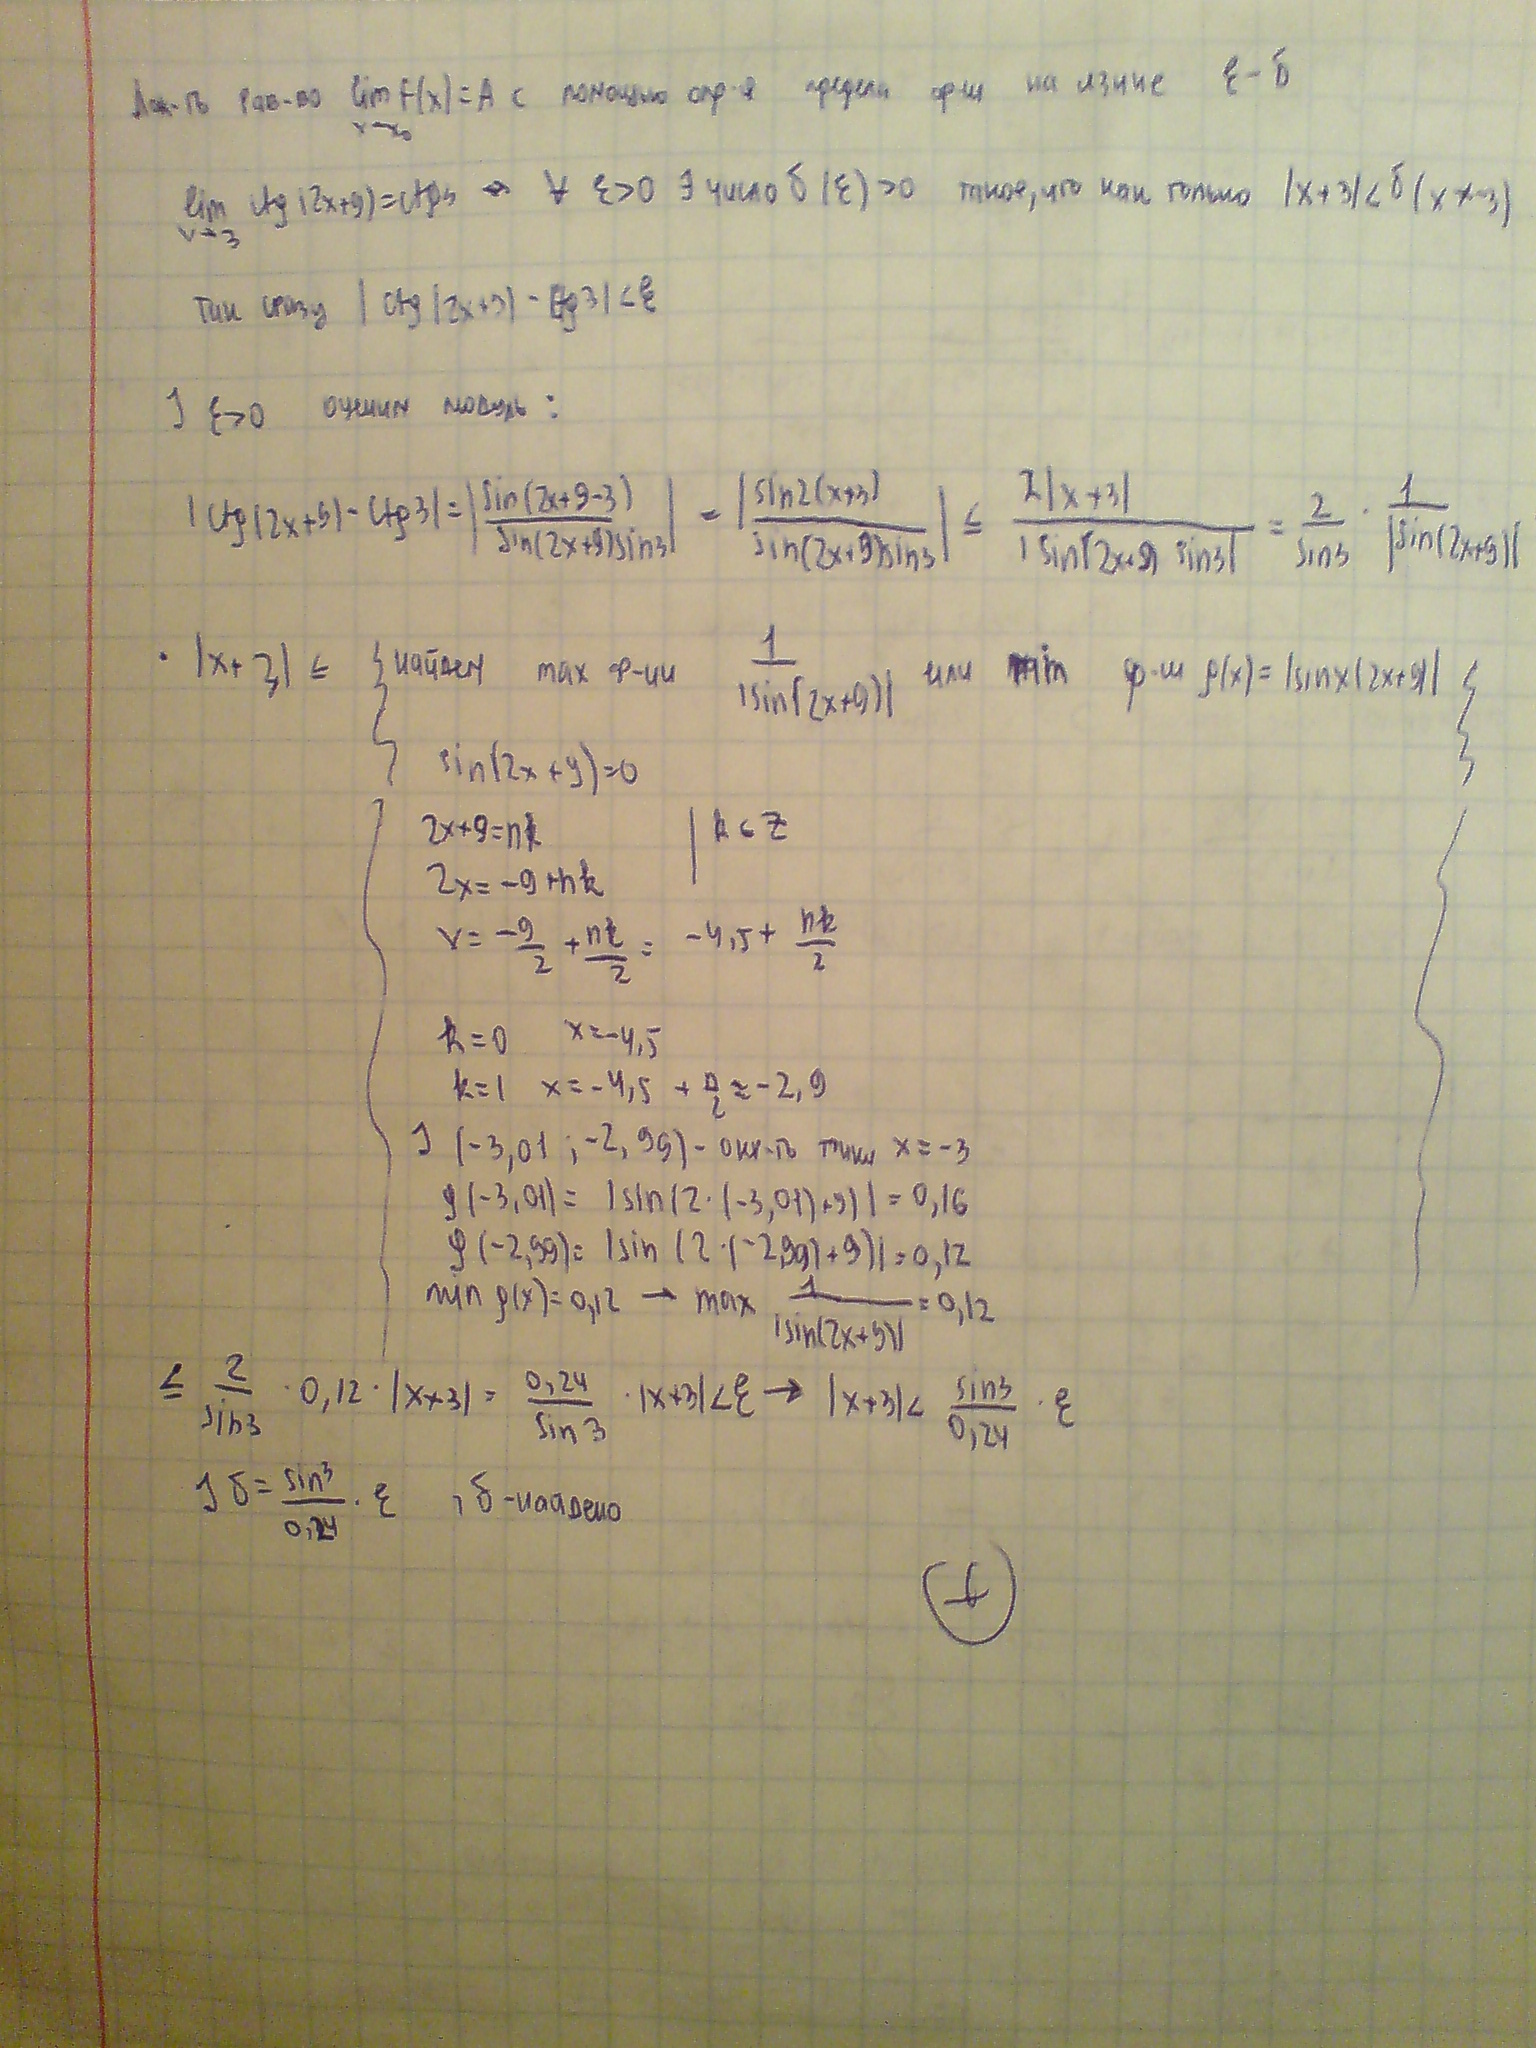 Док-ть рав-во lim f(x) = A с помощью опр-я предела ф-ии на языке ε-δ
x→x₀
lim ctg(2x+9) = ctg3 → ∀ ε>0 ∃ число δ(ε)>0 такое, что как только |x+3|<δ (x≠-3)
x→-3
так сразу |ctg(2x+9) - ctg3| < ε
] ε>0 оценим модуль:
|ctg(2x+9) - ctg3| = |sin(2x+9-3) / sin(2x+9)sin3| = |sin2(x+3) / sin(2x+9)sin3| ≤ 2|x+3| / |sin(2x+9) sin3| = 2/sin3 · 1/|sin(2x+9)|
· |x+3| ≤ { найдем max ф-ии 1/|sin(2x+9)| или min ф-ии φ(x) = |sinx(2x+9)| }
sin(2x+9)=0
2x+9=πk | k∈Z
2x=-9+πk
x = -9/2 + πk/2 = -4,5 + πk/2
k=0 x=-4,5
k=1 x=-4,5 + π/2 ≈ -2,9
] (-3,01 ; -2,99) - окр-ть точки x=-3
φ(-3,01) = |sin(2·(-3,01)+9)| = 0,16
φ(-2,99) = |sin(2·(-2,99)+9)| = 0,12
min φ(x)=0,12 → max 1/|sin(2x+9)| = 0,12
≤ 2/sin3 · 0,12 · |x+3| = 0,24/sin3 · |x+3| < ε → |x+3| < sin3/0,24 · ε
] δ = sin3/0,24 · ε , δ-найдено
+